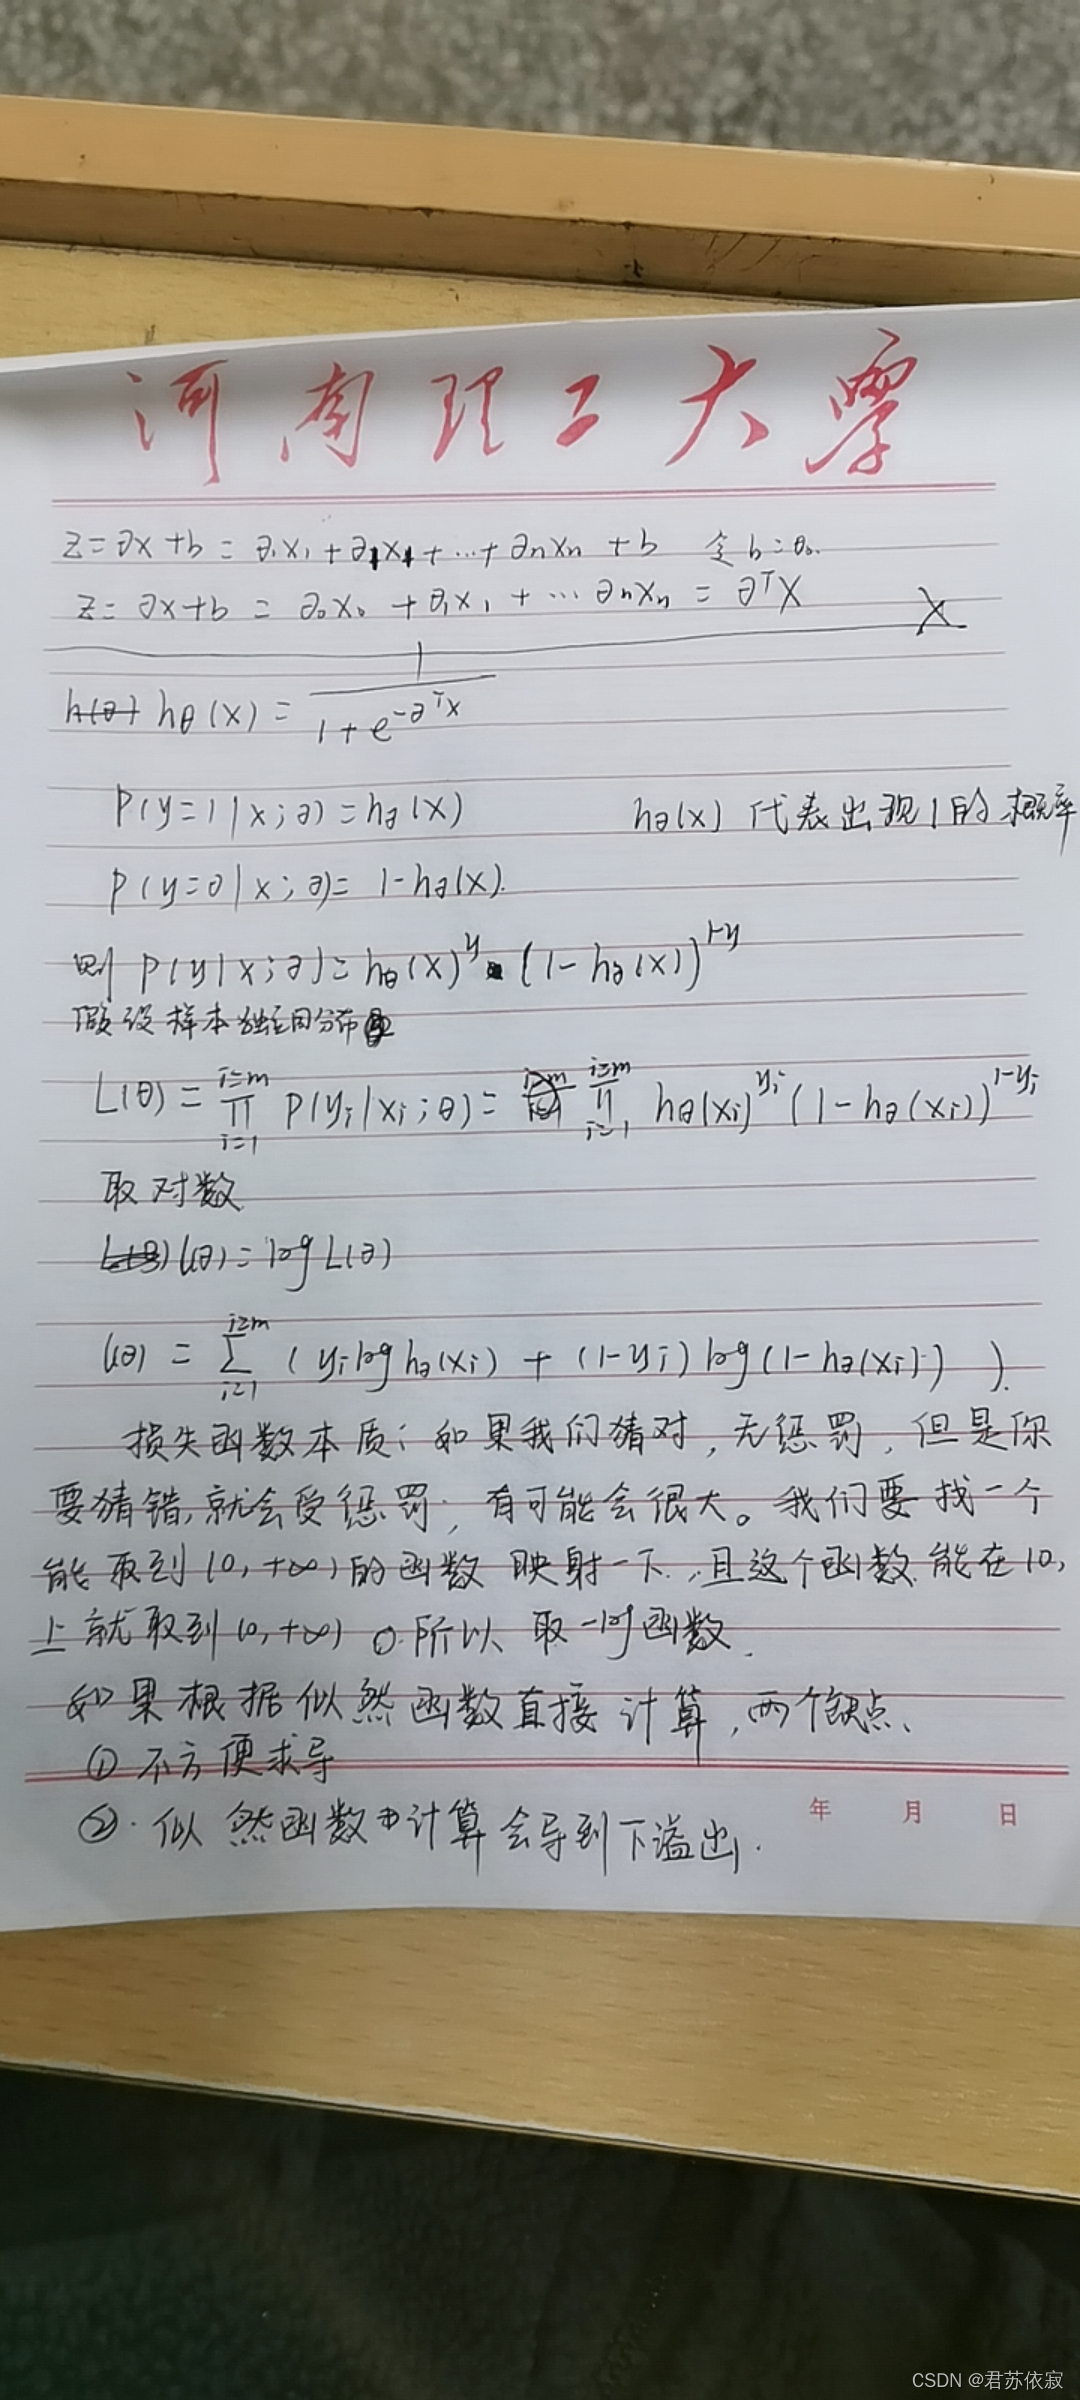 河南理工大学
z=∂x+b = ∂₁x₁+∂₁x₁+…+∂nxn+b 令b=θ₀.
z=∂x+b = ∂₀x₀+∂₁x₁+…∂nxn=∂ᵀX
hθ(x)= 1/(1+e^(-∂ᵀx))
P(y=1|x;∂)=h∂(x) h∂(x)代表出现1的概率
P(y=0|x;∂)=1-h∂(x).
则 P(y|x;∂)=hθ(x)^y·(1-h∂(x))^(1-y)
假设样本独立同分布
L(θ)=∏_{i=1}^{i=m} P(yi|xi;θ)=∏_{i=1}^{i=m} hθ(xi)^yi(1-h∂(xi))^(1-yi)
取对数
l(∂)=log L(∂)
l(∂)=∑_{i=1}^{i=m}(yi log h∂(xi)+(1-yi)log(1-h∂(xi))).
损失函数本质:如果我们猜对,无惩罚,但是你
要猜错,就会受惩罚,有可能会很大。我们要找一个
能取到(0,+∞)的函数映射一下.,且这个函数能在(0,
上就取到(0,+∞)。所以取-log函数.
如果根据似然函数直接计算,两个缺点、
①不方便求导
②.似然函数中计算会导到下溢出.
年 月 日
CSDN @君苏依寂